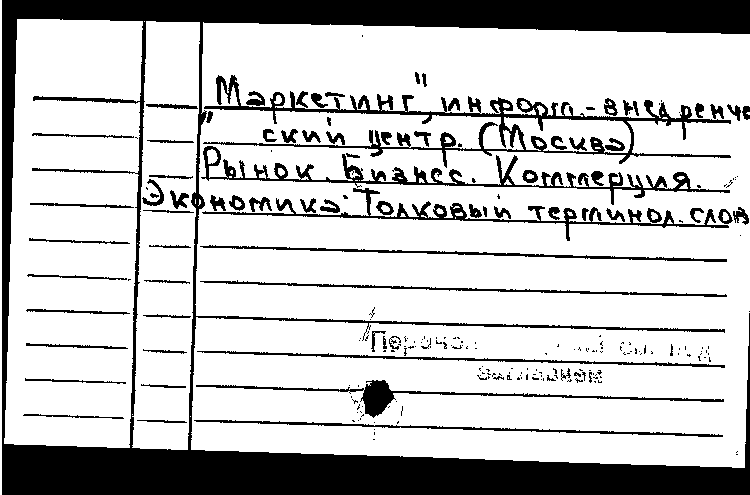 Маркетинг", информ.-внедренче
" ский центр. (Москва)
Рынок. Бизнес. Коммерция.
Экономика: Толковый терминол. слов
под
заглавием